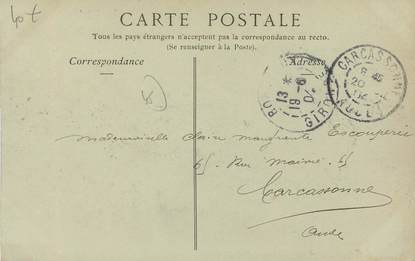 40 t
CARTE POSTALE
Tous les pays étrangers n'acceptent pas la correspondance au recto.
(Se renseigner à la Poste).
Correspondance
Adresse
BO
13
19 - 6
GIRON
CARCASSONNE
8 45
20
AUDE
Mademoiselle Claire Marguerite Escouperié
45 - Rue Mairie - 45
Carcassonne
Aude